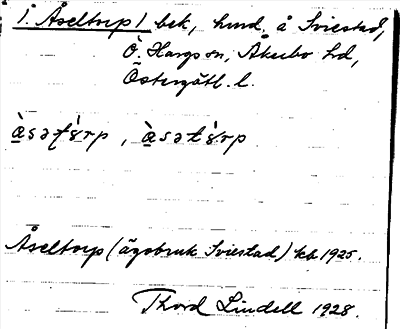 1. Åseltorp 1 bek, hmd. å Sviestad,
Ö. Hargs sn, Åkerbo hd,
Östergötl. l.
Åseltorp (ägobruk Sviestad) kb 1925.
Thord Lindell 1928.